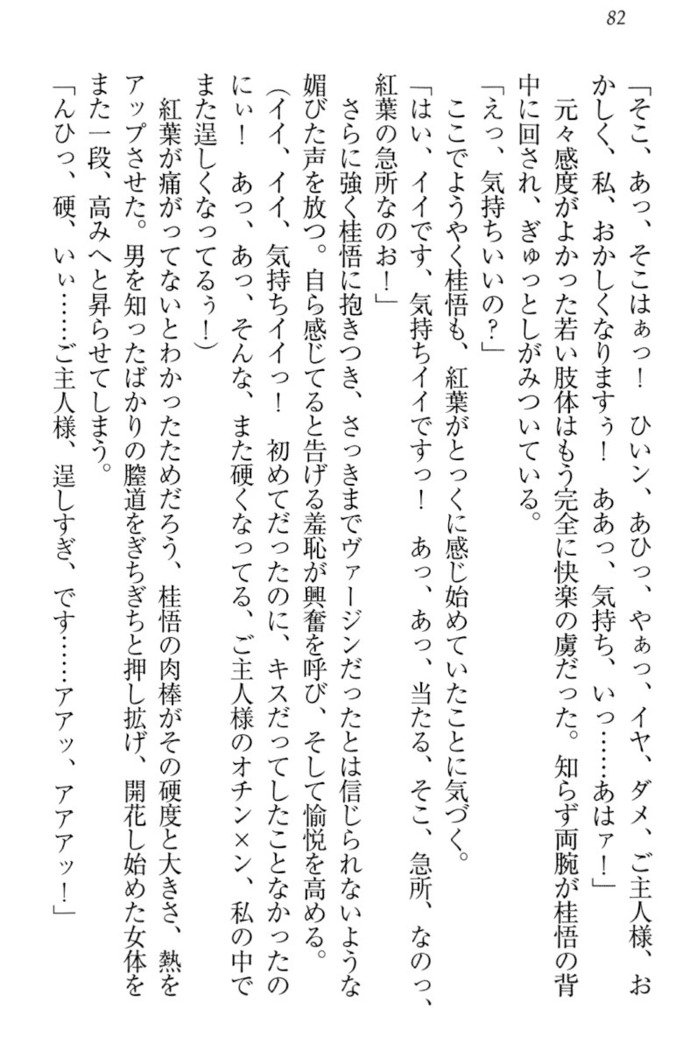 82
「そこ、あっ、そこはぁっ！　ひいン、あひっ、やぁっ、イヤ、ダメ、ご主人様、お
かしく、私、おかしくなりますぅ！　ああっ、気持ち、いっ……あはァ！」
　元々感度がよかった若い肢体はもう完全に快楽の虜だった。知らず両腕が桂悟の背
中に回され、ぎゅっとしがみついている。
「えっ、気持ちいいの？」
　ここでようやく桂悟も、紅葉がとっくに感じ始めていたことに気づく。
「はい、イイです、気持ちイイですっ！　あっ、あっ、当たる、そこ、急所、なのっ、
紅葉の急所なのぉ！」
　さらに強く桂悟に抱きつき、さっきまでヴァージンだったとは信じられないような
媚びた声を放つ。自ら感じてると告げる羞恥が興奮を呼び、そして愉悦を高める。
（イイ、イイ、気持ちイイっ！　初めてだったのに、キスだってしたことなかったの
にぃ！　あっ、あっ、そんな、また硬くなってる、ご主人様のオチン×ン、私の中で
また逞しくなってるぅ！）
　紅葉が痛がってないとわかったためだろう、桂悟の肉棒がその硬度と大きさ、熱を
アップさせた。男を知ったばかりの膣道をぎちぎちと押し拡げ、開花し始めた女体を
また一段、高みへと昇らせてしまう。
「んひっ、硬、いぃ……ご主人様、逞しすぎ、です……アアッ、アアアッ！」